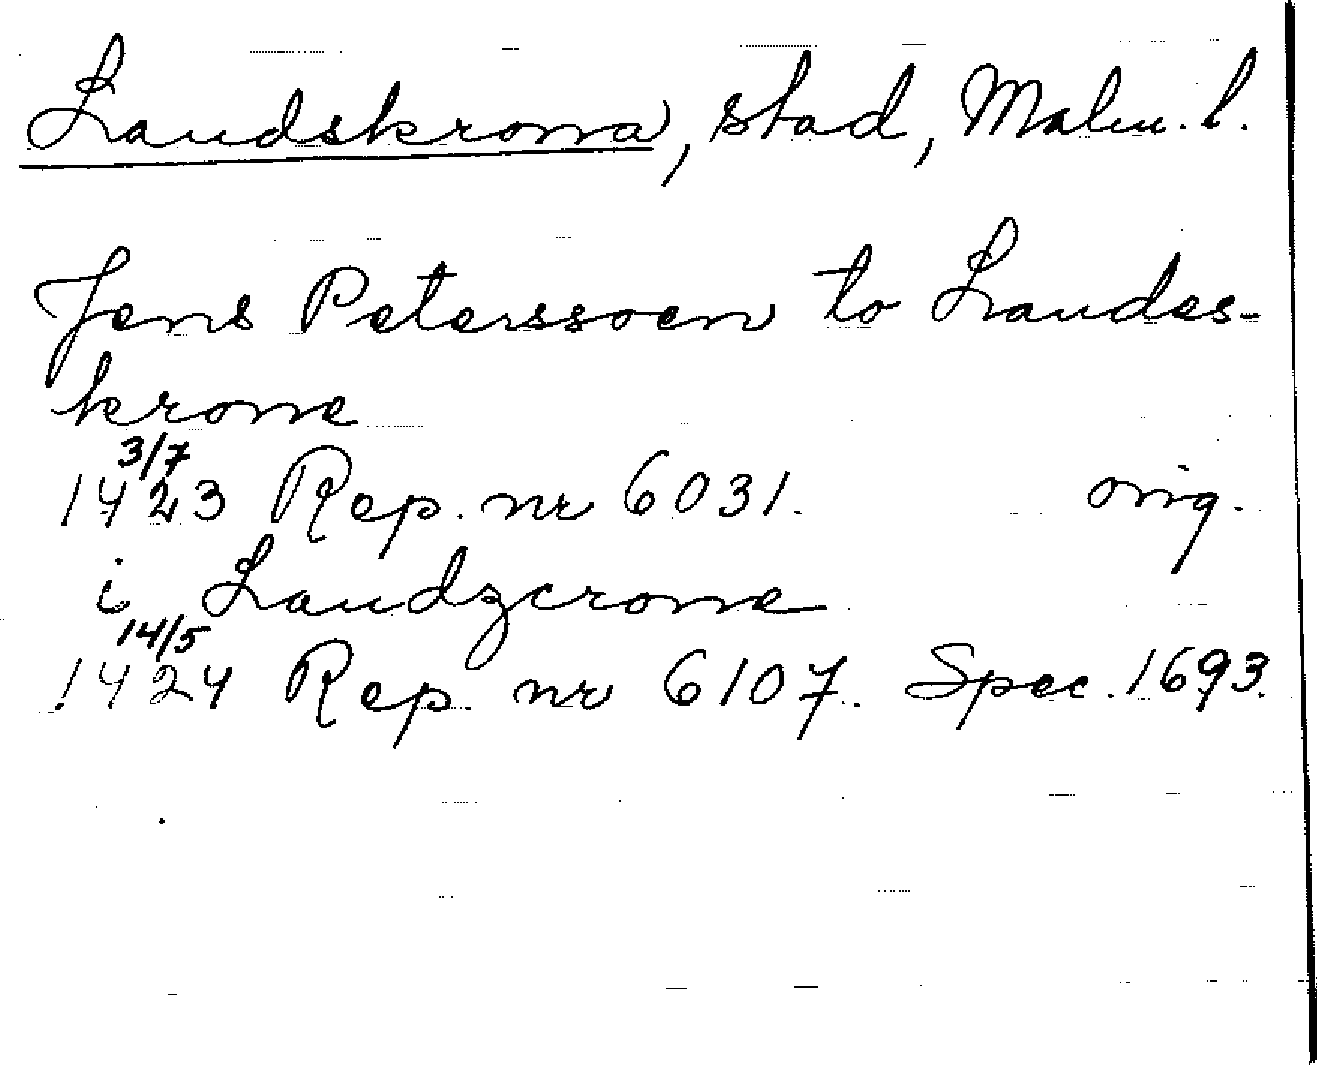 Landskrona, stad, Malm. l.
Jens Peterssoen to Landes-
krone
3/7
1423 Rep. nr 6031. orig.
i Landzcrone
14/5
1424 Rep. nr 6107. Spec. 1693.